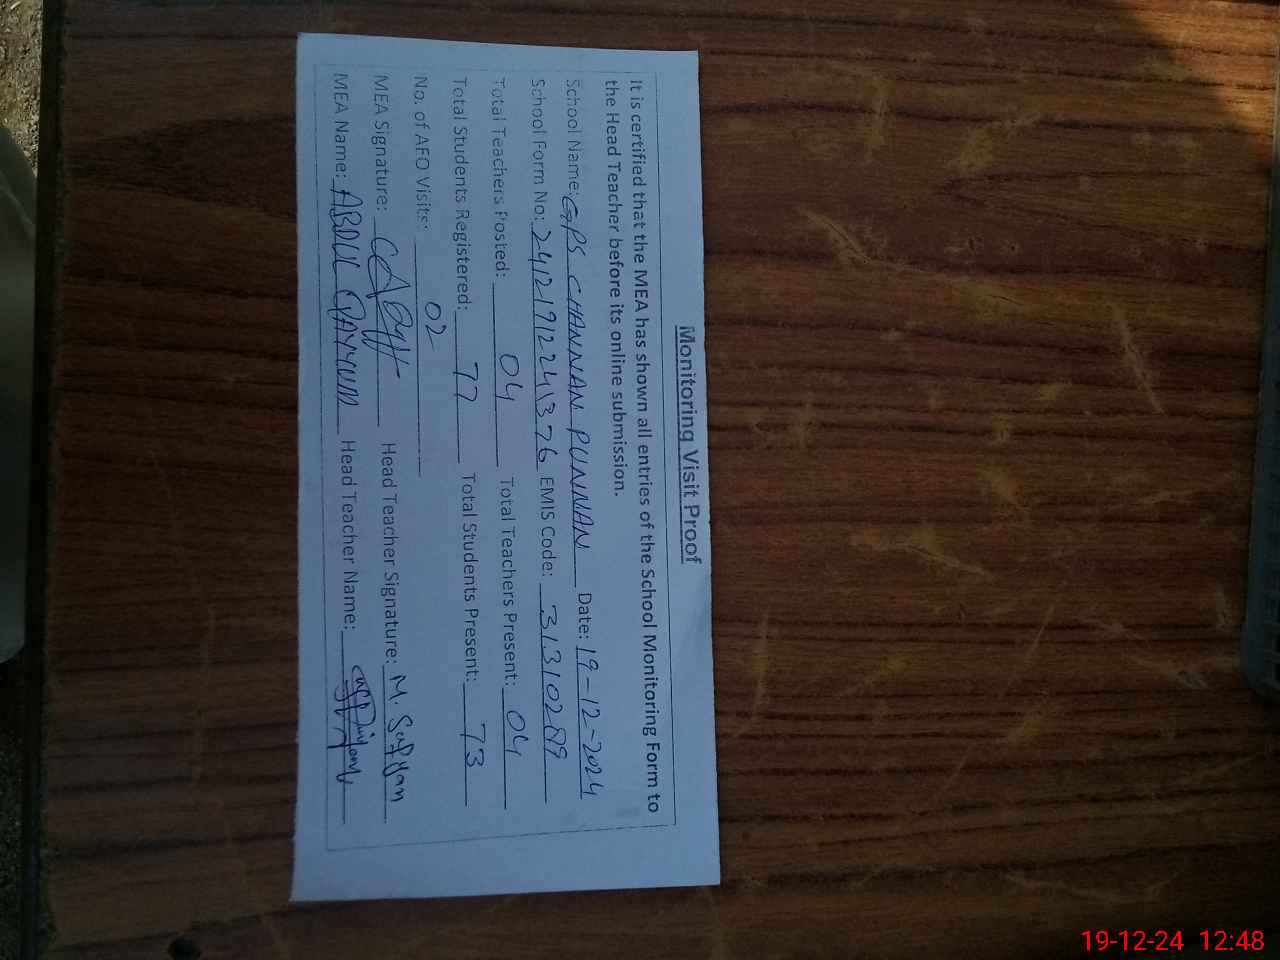 Monitoring Visit Proof
It is certified that the MEA has shown all entries of the School Monitoring Form to
the Head Teacher before its online submission.
School Name: GPS CHANNAN PUNNAN Date: 19-12-2024
School Form No: 24121912241376 EMIS Code: 31310289
Total Teachers Posted: 04 Total Teachers Present: 04
Total Students Registered: 77 Total Students Present: 73
No. of AEO Visits: 02
MEA Signature: Head Teacher Signature: M. Sufyan
MEA Name: ABDUL QAYYUM Head Teacher Name:
19-12-24 12:48